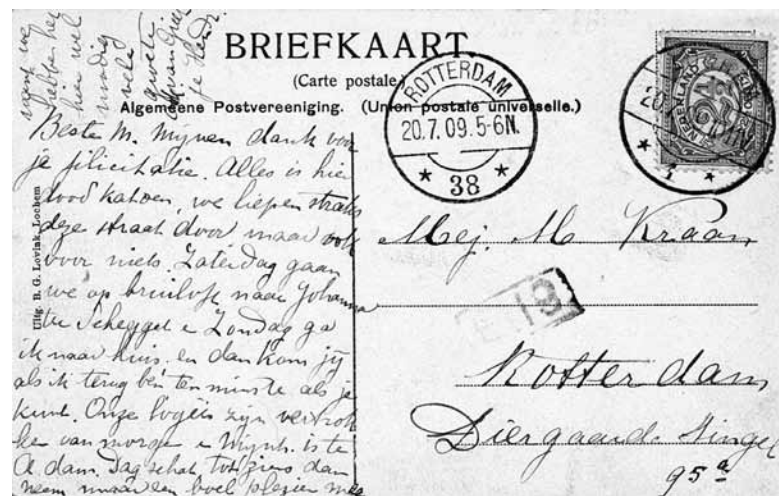 BRIEFKAART
(Carte postale)
Algemeene Postvereeniging. (Union postale universelle.)
ROTTERDAM
20.7.09.5-6N.
* 38 *
NEDERLAND
2½
* 1 *
Uitg. B. G. Lovink, Lochem
Beste M. Mijnen dank voor
je filicitatie. Alles is hier
dood katoen, we liepen straks
deze straat door maar ook
voor niets. Zaterdag gaan
we op bruiloft naar Johanna
te Schegget e Zondag ga
ik naar huis en dan kom jij
als ik terug ben ten minste als je
kunt. Onze logées zijn vertrok
ken van morge e Mijnh. is te
A. dam. Dag schat tot ziens dan
neem maar een boel plezier mee
want we
hebben het
hier wel
noodig
vele
groete
van
je
Mej. M Kraan
Rotterdam
Diergaarde Singel
95a